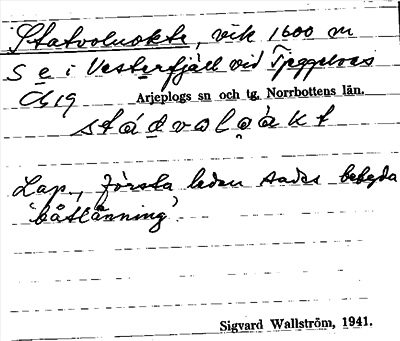 Statvoluokte, vik 1600 m
S e i Vesterfjäll vid Tjeggelvas
Cb 19 Arjeplogs sn och tg, Norrbottens län.
stádvalọàkt
Lap., första leden sades betyda
'båtlänning'
Sigvard Wallström, 1941.